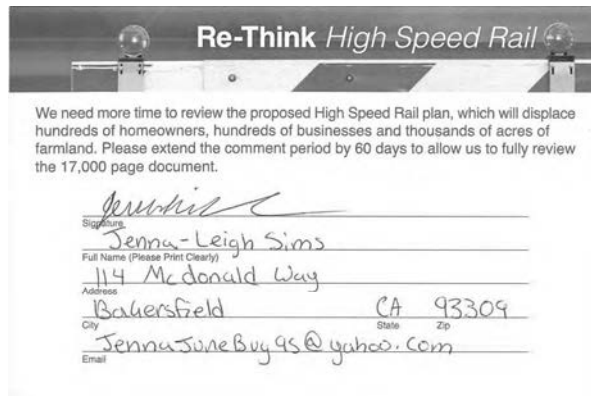 Re-Think High Speed Rail
We need more time to review the proposed High Speed Rail plan, which will displace
hundreds of homeowners, hundreds of businesses and thousands of acres of
farmland. Please extend the comment period by 60 days to allow us to fully review
the 17,000 page document.
Signature
Jenna-Leigh Sims
Full Name (Please Print Clearly)
114 Mcdonald Way
Address
Bakersfield CA 93309
City State Zip
JennaJuneBug95@yahoo.com
Email